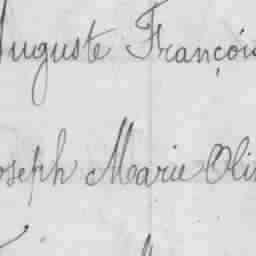 Auguste François
Joseph Marie Oli